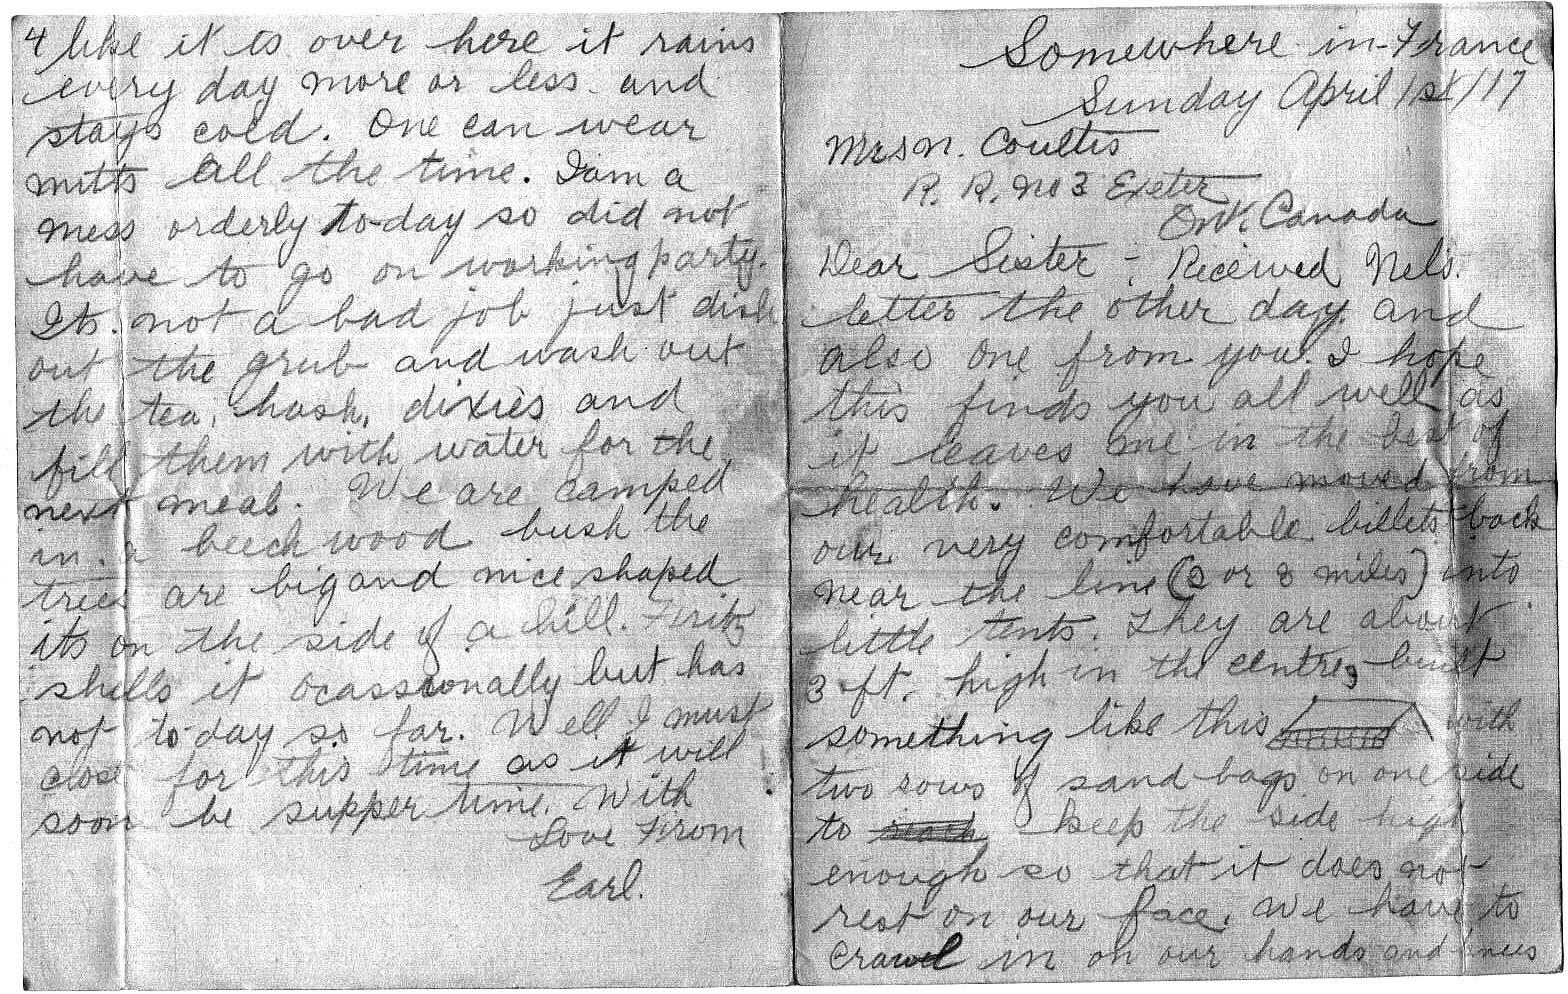 Somewhere in France
Sunday April 1st/17
Mrs N. Coultis
R. R. No 3 Exeter
Ont. Canada
Dear Sister - Received Nels.
letter the other day. and
also one from you. I hope
this finds you all well as
it leaves me in the best of
health. We have moved from
our very comfortable billets back
near the line ( or 8 miles) into
little tents. They are about
3 ft. high in the centre, built
something like this with
two rows of sand bags on one side
to keep the side high
enough so that it does not
rest on our face. We have to
crawl in on our hands and knees
4 like it is over here it rains
every day more or less and
stays cold. One can wear
mitts all the time. I am a
mess orderly to-day so did not
have to go on working party.
Its. not a bad job just dish
out the grub and wash out
the tea, hash, dixies and
fill them with water for the
next meal. We are camped
in a beech wood bush the
trees are big and nice shaped
its on the side of a hill. Fritz
shells it ocassionally but has
not to-day so far. Well I must
close for this time as it will
soon be supper time. With
Love From
Earl.